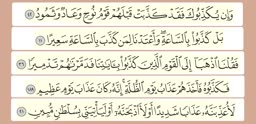 وَإِن يُكَذِّبُوكَ فَقَدْ كَذَّبَتْ قَبْلَهُمْ قَوْمُ نُوحٍ وَعَادٌ وَثَمُودُ ٤٢
بَلْ كَذَّبُوا۟ بِٱلسَّاعَةِ ۖ وَأَعْتَدْنَا لِمَن كَذَّبَ بِٱلسَّاعَةِ سَعِيرًا ١١
فَقُلْنَا ٱذْهَبَآ إِلَى ٱلْقَوْمِ ٱلَّذِينَ كَذَّبُوا۟ بِـَٔايَٰتِنَا فَدَمَّرْنَٰهُمْ تَدْمِيرًا ٣٦
فَكَذَّبُوهُ فَأَخَذَهُمْ عَذَابُ يَوْمِ ٱلظُّلَّةِ ۚ إِنَّهُۥ كَانَ عَذَابَ يَوْمٍ عَظِيمٍ ١٨٩
لَأُعَذِّبَنَّهُۥ عَذَابًا شَدِيدًا أَوْ لَأَا۟ذْبَحَنَّهُۥٓ أَوْ لَيَأْتِيَنِّى بِسُلْطَٰنٍ مُّبِينٍ ٢١